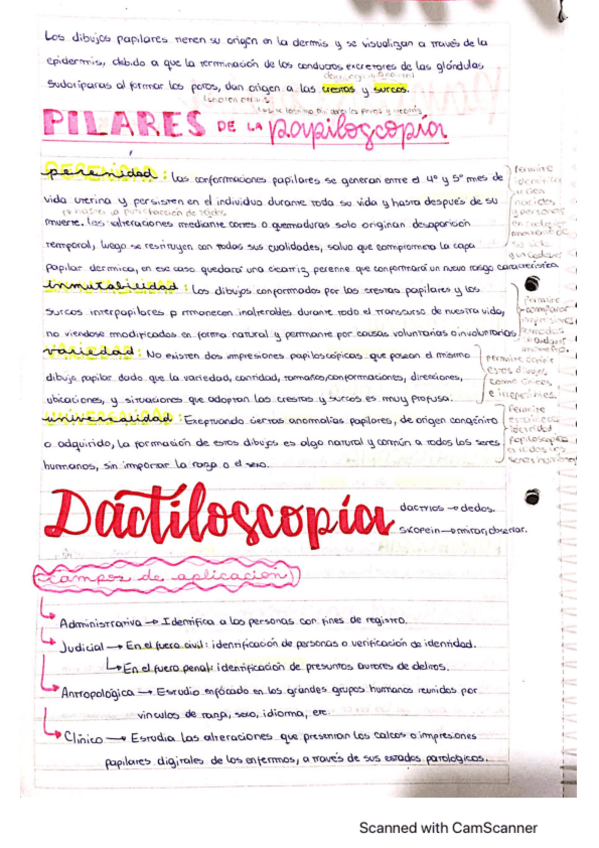 Los dibujos papilares tienen su origen en la dermis y se visualizan a través de la
epidermis, debido a que la terminación de los conductos excretores de las glándulas
sudoríparas al formar los poros, dan origen a las crestas y surcos.
PILARES DE LA papiloscopía
perennidad: Las conformaciones papilares se generan entre el 4° y 5° mes de
vida uterina y persisten en el individuo durante toda su vida y hasta después de su
muerte. Las alteraciones mediante cortes o quemaduras solo originan desaparición
temporal, luego se restituyen con todas sus cualidades, salvo que comprometa la capa
papilar dermica, en ese caso quedará una cicatriz perenne que conformará un nuevo rasgo característico
inmutabilidad: Los dibujos conformados por las crestas papilares y los
surcos interpapilares permanecen inalterables durante todo el transcurso de nuestra vida,
no viendose modificados en forma natural y permanente por causas voluntarias o involuntarias
variedad: No existen dos impresiones papiloscópicas que posean el mismo
dibujo papilar dado que la variedad, cantidad, tamaños, conformaciones, direcciones,
ubicaciones, y situaciones que adoptan las crestas y surcos es muy profusa.
universalidad: Exceptuando ciertas anomalías papilares, de origen congénito
o adquirido, la formación de estos dibujos es algo natural y común a todos los seres
humanos, sin importar la raza o el sexo.
Dactiloscopía
dactilos → dedos.
skopein → mirar, observar.
Campos de aplicación
Administrativa → Identifica a las personas con fines de registro.
Judicial → En el fuero civil: identificación de personas o verificación de identidad.
En el fuero penal: identificación de presuntos autores de delitos.
Antropológica → Estudio enfocado en los grandes grupos humanos reunidos por
vinculos de raza, sexo, idioma, etc.
Clínico → Estudia las alteraciones que presentan los calcos o impresiones
papilares digitales de los enfermos, a través de sus estados patologicos.
Scanned with CamScanner